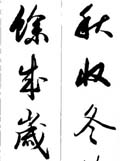 秋收冬
餘成歲